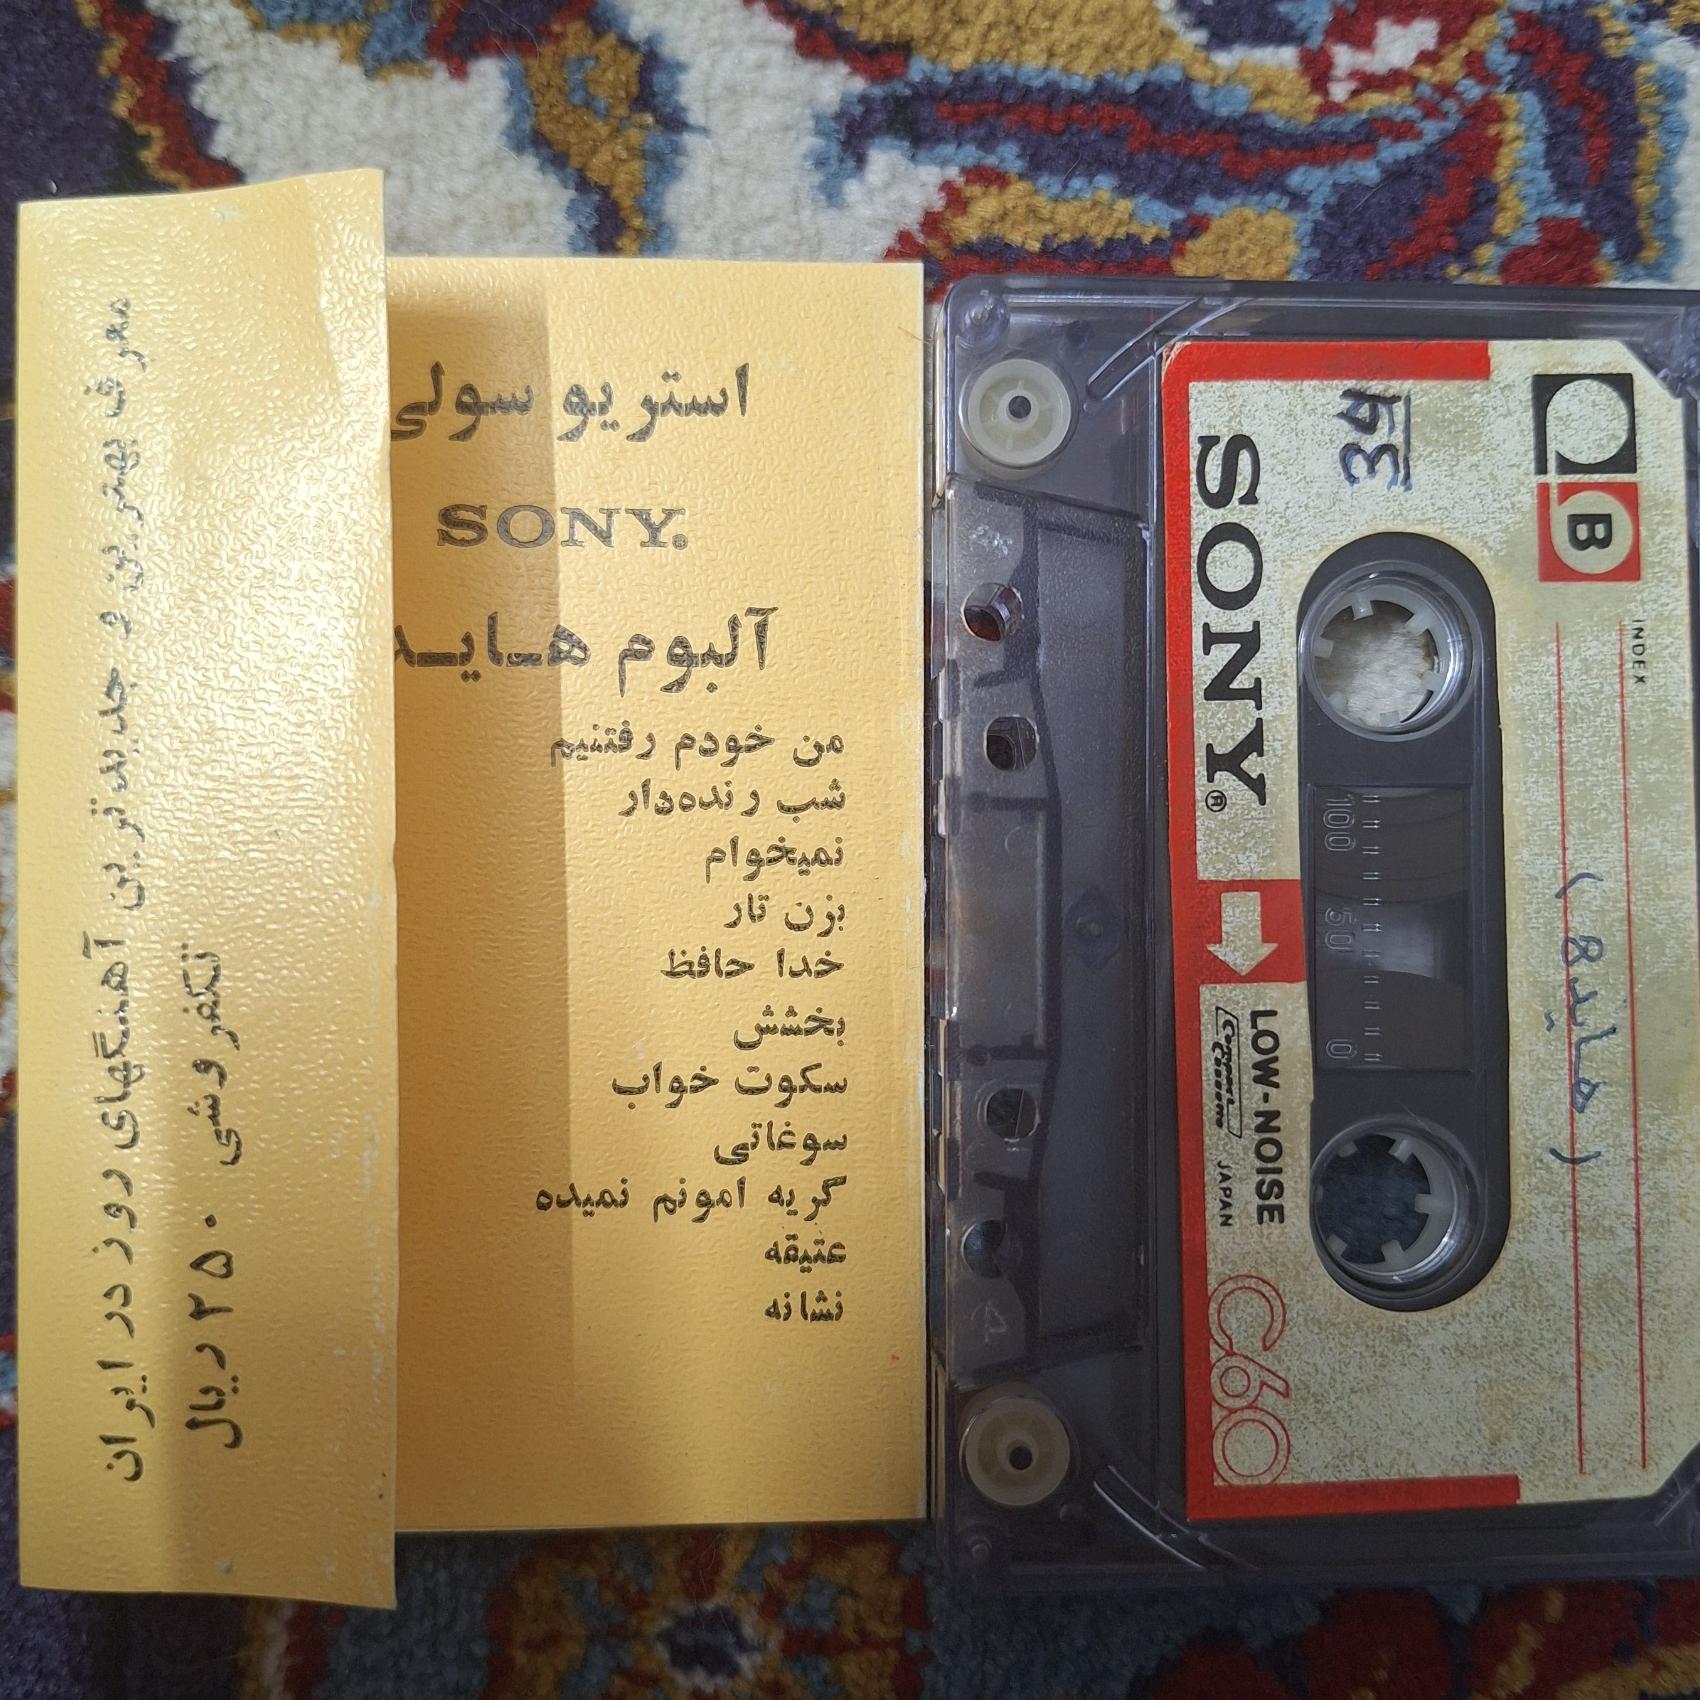 معرف بهترین و جدیدترین آهنگهای روز در ایران
تکفروشی ۲۵۰ ریال
استریو سولی
SONY.
آلبوم هـایـد
من خودم رفتنیم
شب رنده‌دار
نمیخوام
بزن تار
خدا حافظ
بخشش
سکوت خواب
سوغاتی
گریه امونم نمیده
عتیقه
نشانه
SONY®
LOW-NOISE
Compact Cassette
JAPAN
C60
100 50 0
B
INDEX
(هایده)